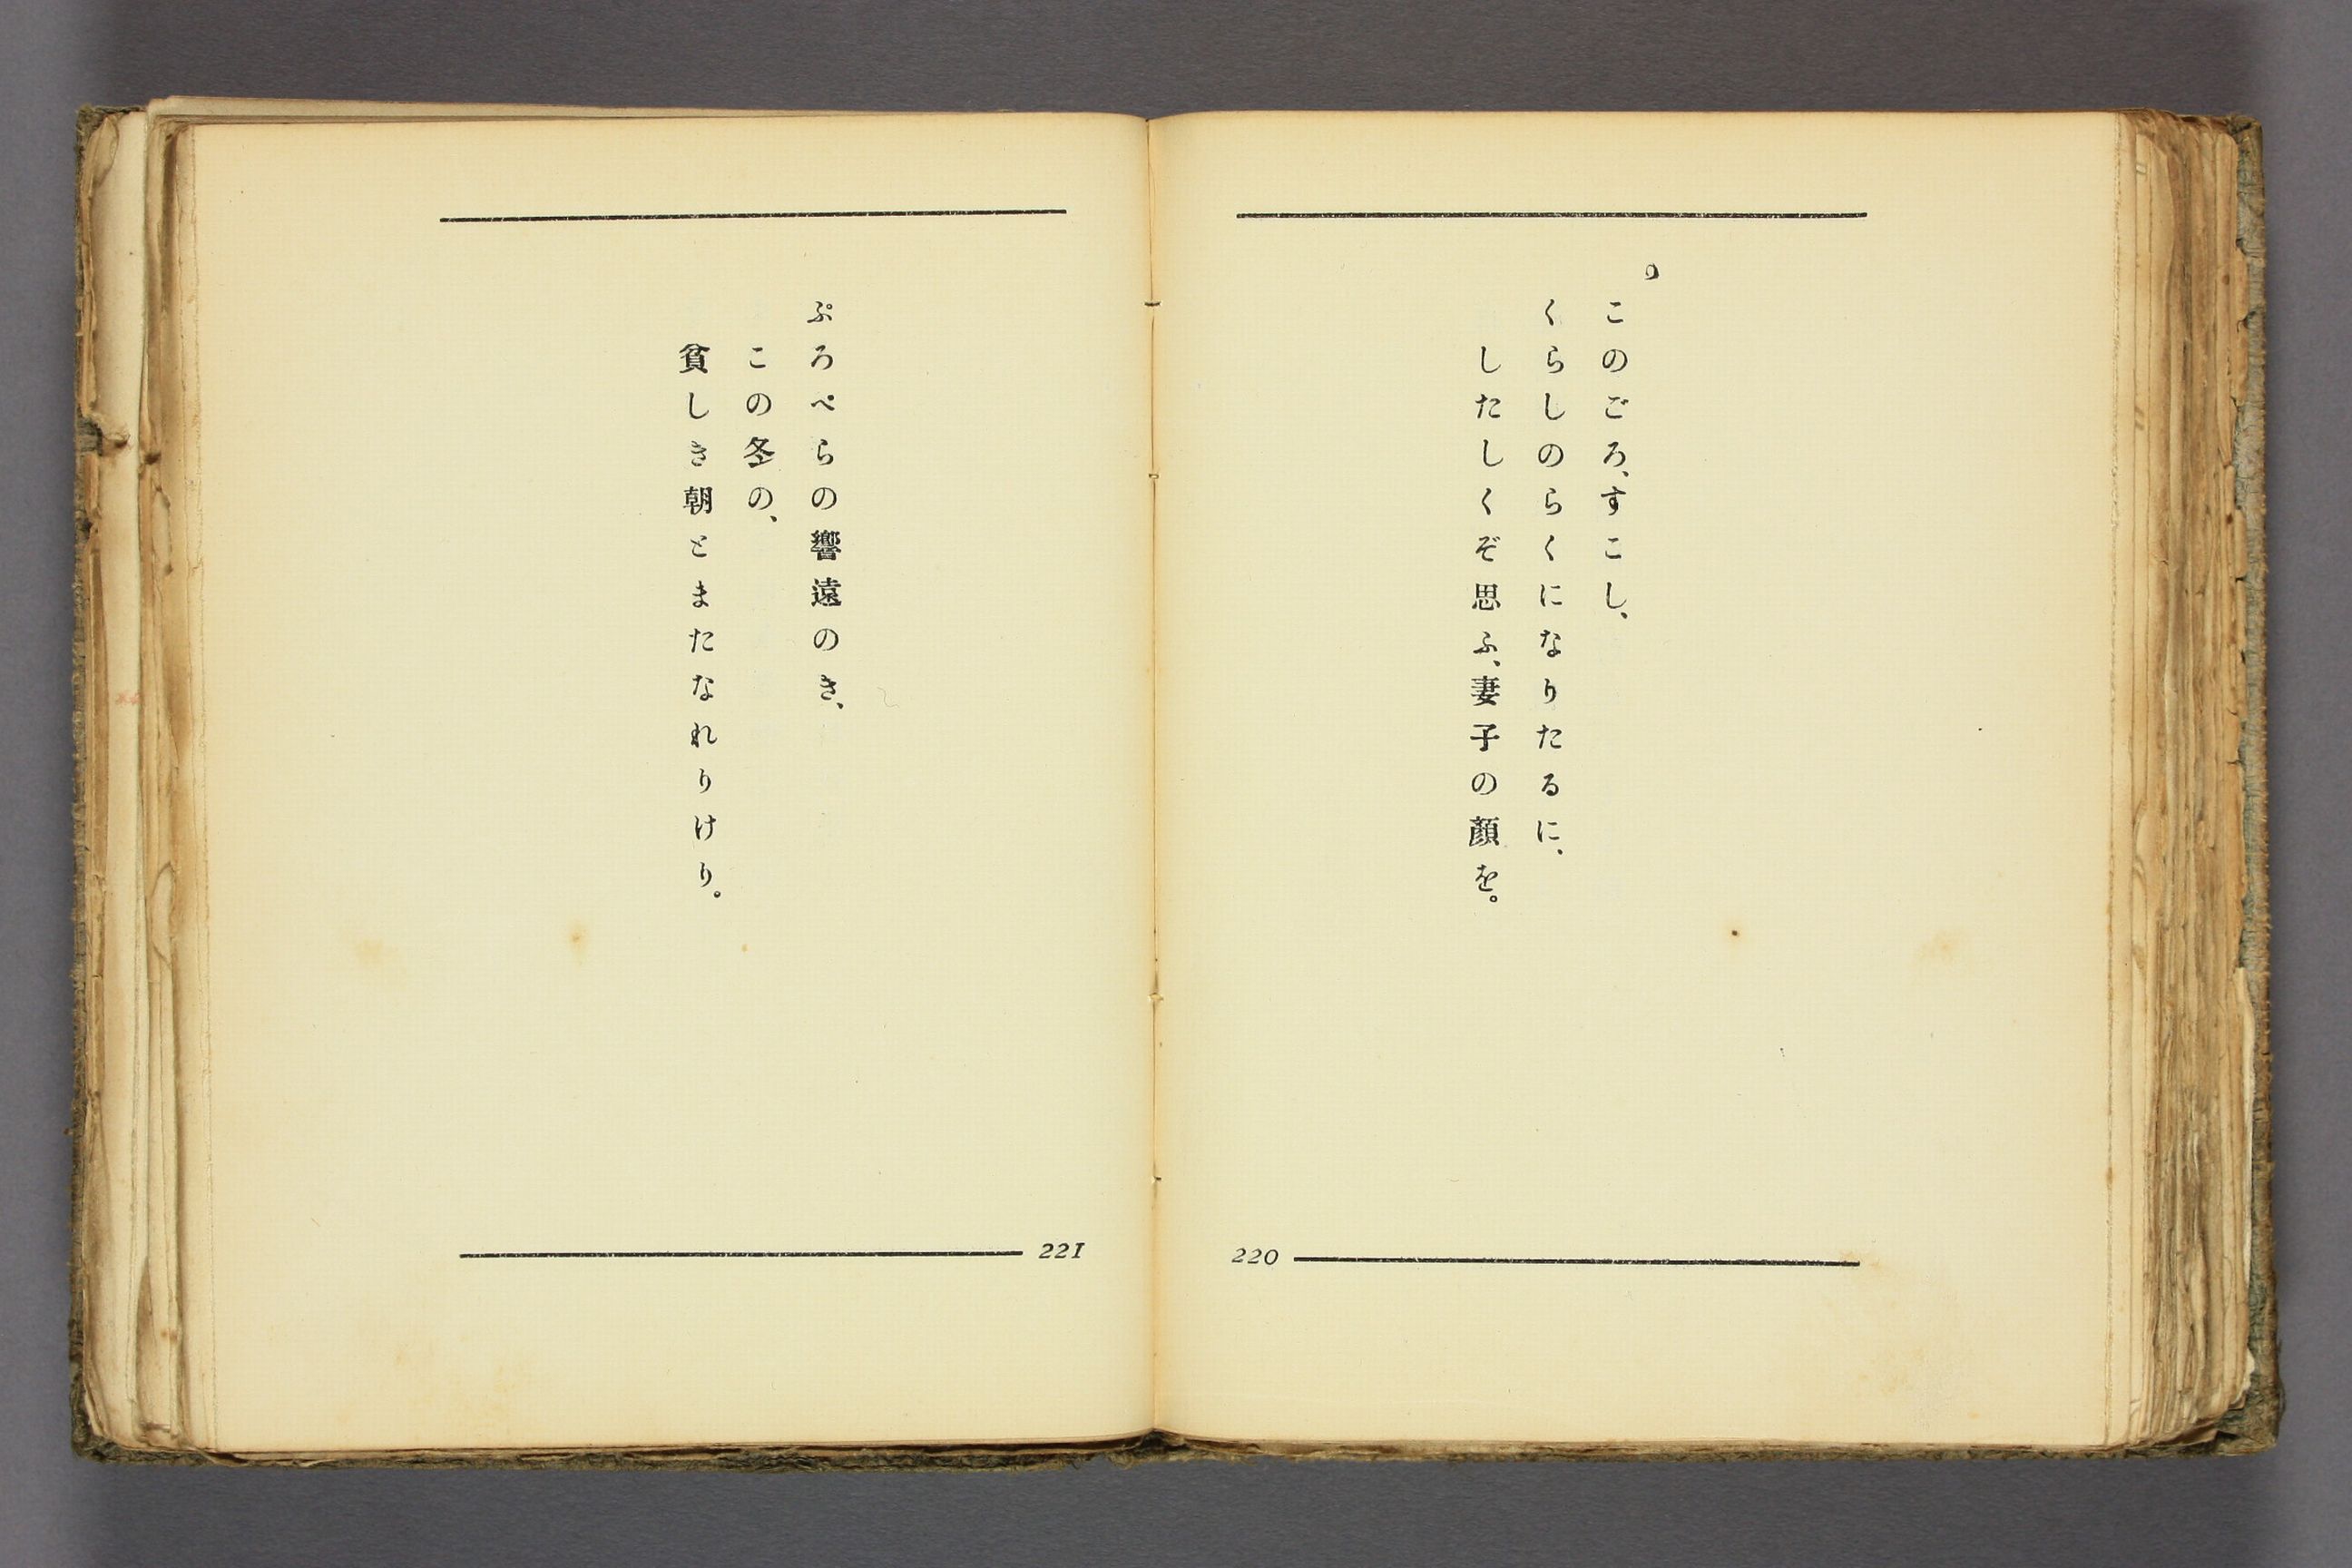 このごろ、すこし、
くらしのらくになりたるに、
したしくぞ思ふ、妻子の顔を。
220
ぷろぺらの響遠のき、
この冬の、
貧しき朝とまたなれりけり。
221